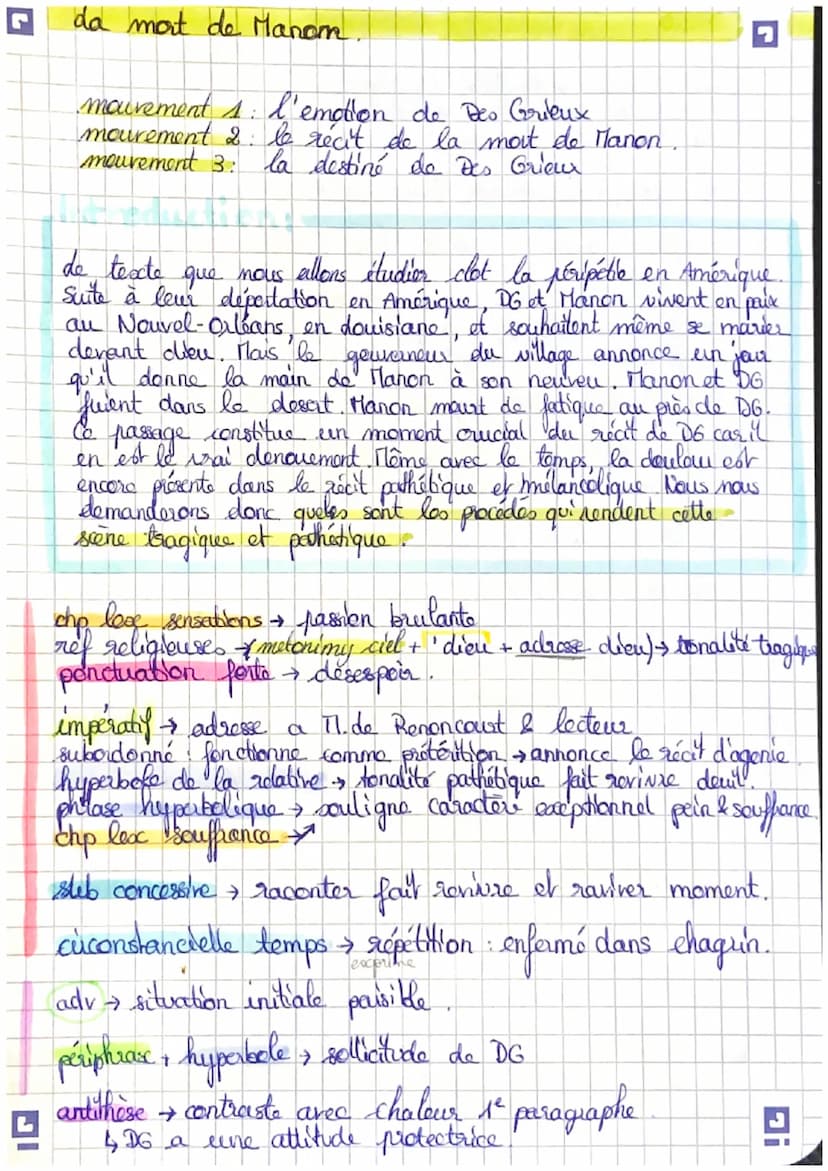 La mort de Manon.
mouvement 1 : l'emotion de Des Grieux
mouvement 2 : le récit de la mort de Manon.
mouvement 3 : la destiné de Des Grieux
Introduction :
Le texte que nous allons étudier clot la péripétie en Amérique.
Suite à leur déportation en Amérique, DG et Manon vivent en paix
au Nouvel-Orléans, en Louisiane, et souhaitent même se marier
devant dieu. Mais le gouverneur du village annonce un jour
qu'il donne la main de Manon à son neuveu. Manon et DG
fuient dans le desert. Manon meurt de fatique au près de DG.
Ce passage constitue un moment crucial du récit de DG car il
en est le vrai denouement. Même avec le temps, la douleur est
encore présente dans le récit pathétique et mélancolique. Nous nous
demanderons donc queles sont les procédés qui rendent cette
scène tragique et pathétique ?
chp lexe sensations → passion brulante
ref religieuses → (metonimy ciel + 'dieu + adresse dieu) → tonalité tragique
ponctuation forte → désespoir.
impératif → adresse a M. de Renoncourt & lecteur
subordonné : fonctionne comme prétérition → annonce le récit d'agonie
hyperbole de la relative → tonalité pathétique fait revivre deuil.
phrase hyperbolique → souligne caractère exceptionnel pein & souffrance
chp lex souffrance ↗
sub concessive → raconter fait revivre et raviver moment.
circonstancielle temps → répétition : enfermé dans chagrin.
exprime
adv → situation initiale paisible.
périphrase + hyperbole → sollicitude de DG
antithèse → contraste avec chaleur 1e paragraphe
↳ DG a une attitude protectrice.